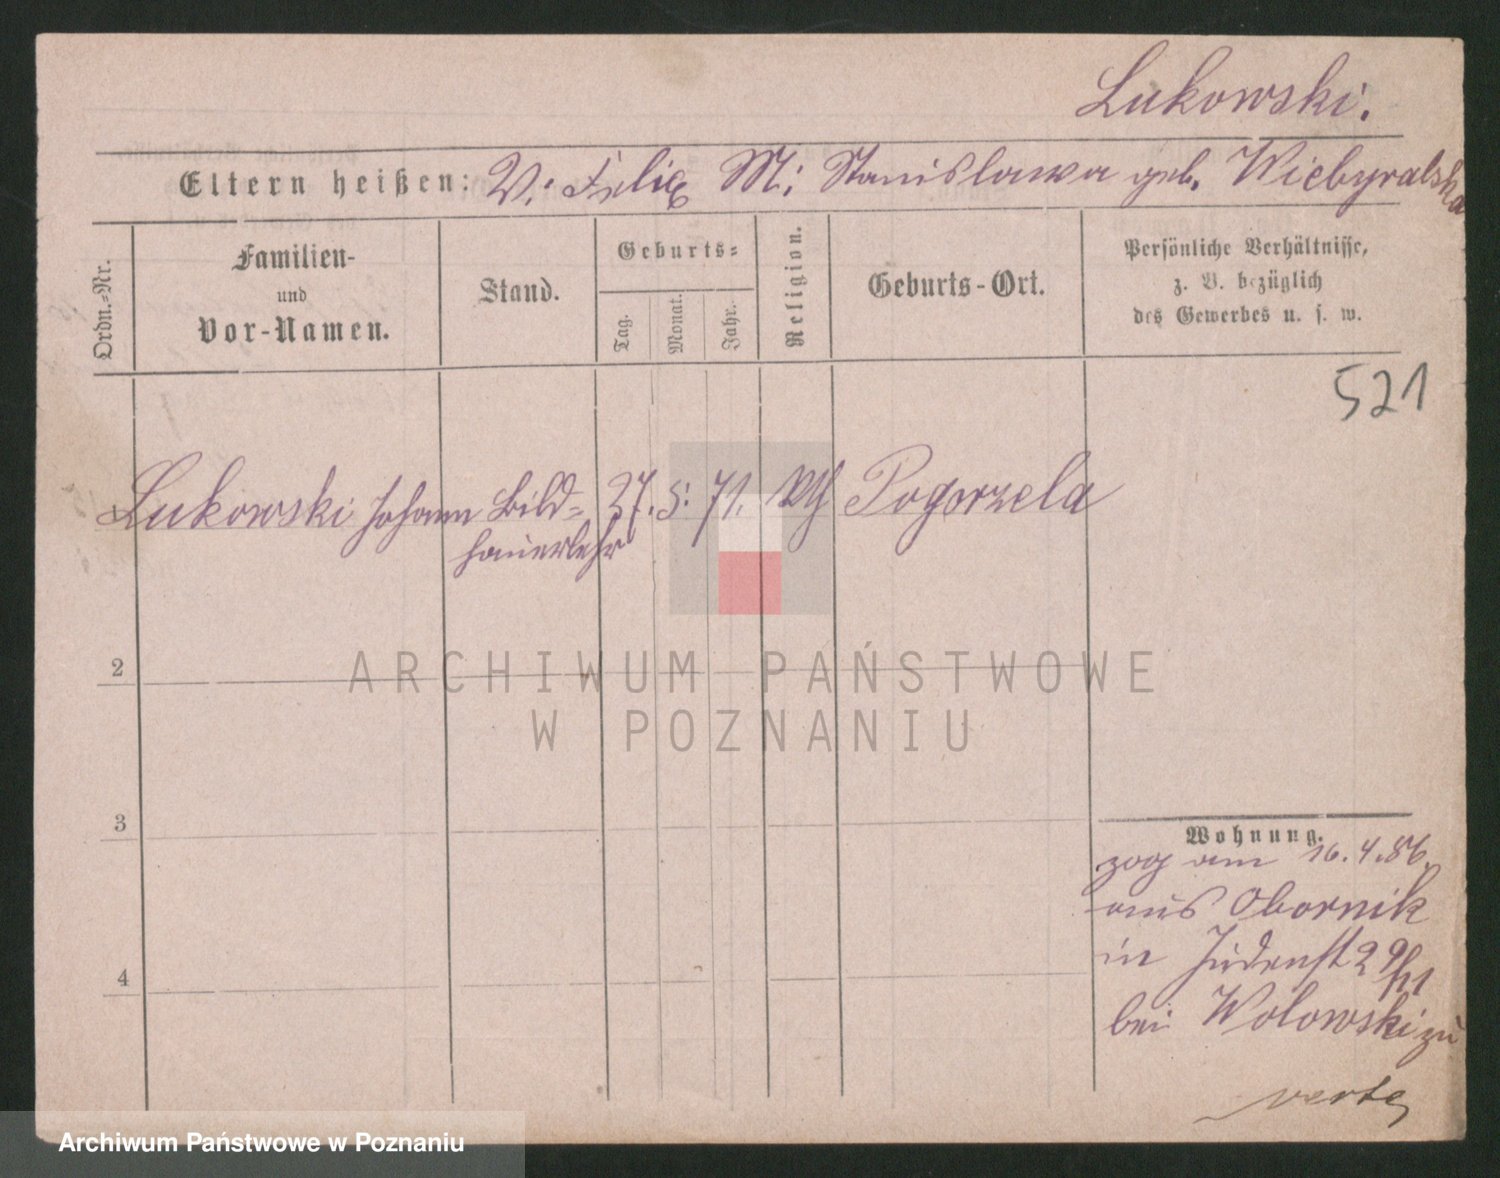 Lukowski.
Eltern heißen: V: Felix M: Stanislawa geb. Wiebyralska
Ordn.-Nr.
Familien-
und
Vor-Namen.
Stand.
Geburts-
Tag.
Monat.
Jahr.
Religion.
Geburts-Ort.
Persönliche Verhältnisse,
z. B. bezüglich
des Gewerbes u. s. w.
521
Lukowski Johann Bild- 27. 5. 71. kth Pogorzela
hauerlehr
2
ARCHIWUM PAŃSTWOWE
W POZNANIU
3
Wohnung.
zog am 16.4.86.
aus Obornik
in Judenst 29/11
bei Wolowski zu
4
verte
Archiwum Państwowe w Poznaniu